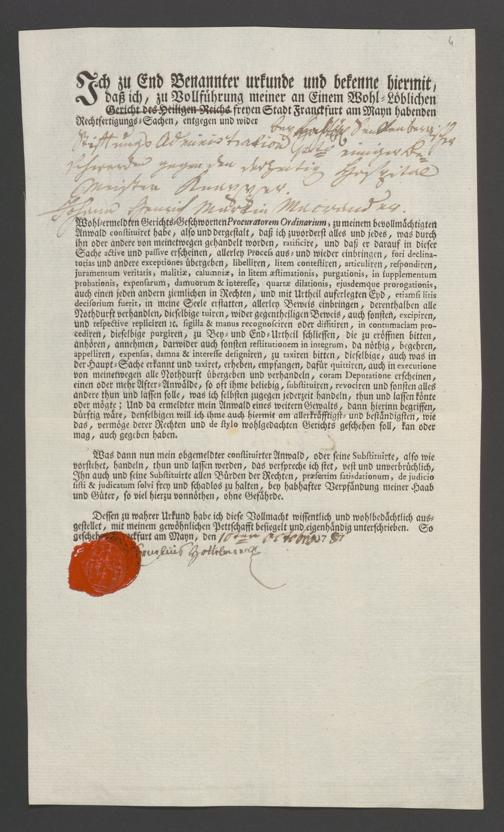 6
Ich zu End Benannter urkunde und bekenne hiermit,
daß ich, zu Vollführung meiner an Einem Wohl-Löblichen
Gericht des Heiligen Reichs freyen Stadt Franckfurt am Mayn habenden
Rechtfertigungs-Sachen, entgegen und wider
der Senckenbergischen
Stifftungs Administration einiger Be-
schwerden gegen den derzeitig Hospital
Meister
Johann Henrich Martin
Wohl-ermeldten Gerichts-Geschwornen Procuratorem Ordinarium, zu meinem bevollmächtigten
Anwald constituiret habe, also und dergestalt, daß ich zuvorderst alles und jedes, was durch
ihn oder andere von meinetwegen gehandelt worden, ratificire, und daß er darauf in dieser
Sache active und passive erscheinen, allerley Proceß aus- und wieder einbringen, fori declina-
torias und andere exceptiones übergeben, libelliren, litem contestiren, articuliren, respondiren,
juramentum veritatis, malitiæ, calumniæ, in litem æstimationis, purgationis, in supplementum
probationis, expensarum, damnorum & interesse, quartæ dilationis, ejusdemque prorogationis,
auch einen jeden andern ziemlichen in Rechten, und mit Urtheil auferlegten Eyd, etiamsi litis
decisorium fuerit, in meine Seele erstatten, allerley Beweis einbringen, derenthalben alle
Nothdurft verhandlen, dieselbige tuiren, wider gegentheiligen Beweis, auch sonsten, excipiren,
und respective repliciren ꝛc. sigilla & manus recognosciren oder diffitiren, in contumaciam pro-
cediren, dieselbige purgiren, zu Bey- und End-Urtheil schliessen, die zu eröffnen bitten,
anhören, annehmen, darwider auch sonsten restitutionem in integrum, da nöthig, begehren,
appelliren, expensas, damna & interesse designiren, zu taxiren bitten, dieselbige, auch was in
der Haupt-Sache erkannt und taxiret, erheben, empfangen, dafür quittiren, auch in executione
von meinetwegen alle Nothdurft übergeben und verhandeln, coram Deputatione erscheinen,
einen oder mehr After-Anwälde, so oft ihme beliebig, substituiren, revociren und sonsten alles
andere thun und lassen solle, was ich selbsten zugegen jederzeit handeln, thun und lassen könte
oder mögte; Und da ermeldter mein Anwald eines weitern Gewalts, dann hierinn begriffen,
dürftig wäre, denselbigen will ich ihme auch hiermit am allerkräftigst- und beständigsten, wie
das, vermöge derer Rechten und de stylo wohlgedachten Gerichts geschehen soll, kan oder
mag, auch gegeben haben.
Was dann nun mein obgemeldter constituirter Anwald, oder seine Substituirte, also wie
vorstehet, handeln, thun und lassen werden, das verspreche ich stet, vest und unverbrüchlich,
Ihn auch und seine Substituirte allen Bürden der Rechten, præsertim satisdationum, de judicio
sisti & judicatum solvi frey und schadlos zu halten, bey habhafter Verpfändung meiner Haab
und Güter, so viel hierzu vonnöthen, ohne Gefährde.
Dessen zu wahrer Urkund habe ich diese Vollmacht wissentlich und wohlbedächtlich aus-
gestellet, mit meinem gewöhnlichen Pettschafft besiegelt und eigenhändig unterschrieben. So
geschehen Franckfurt am Mayn, den 10ten Octobr. 1781
Cornelius